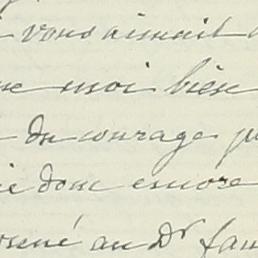 vous aimait
moi bien
du courage
donc encore
au Dr